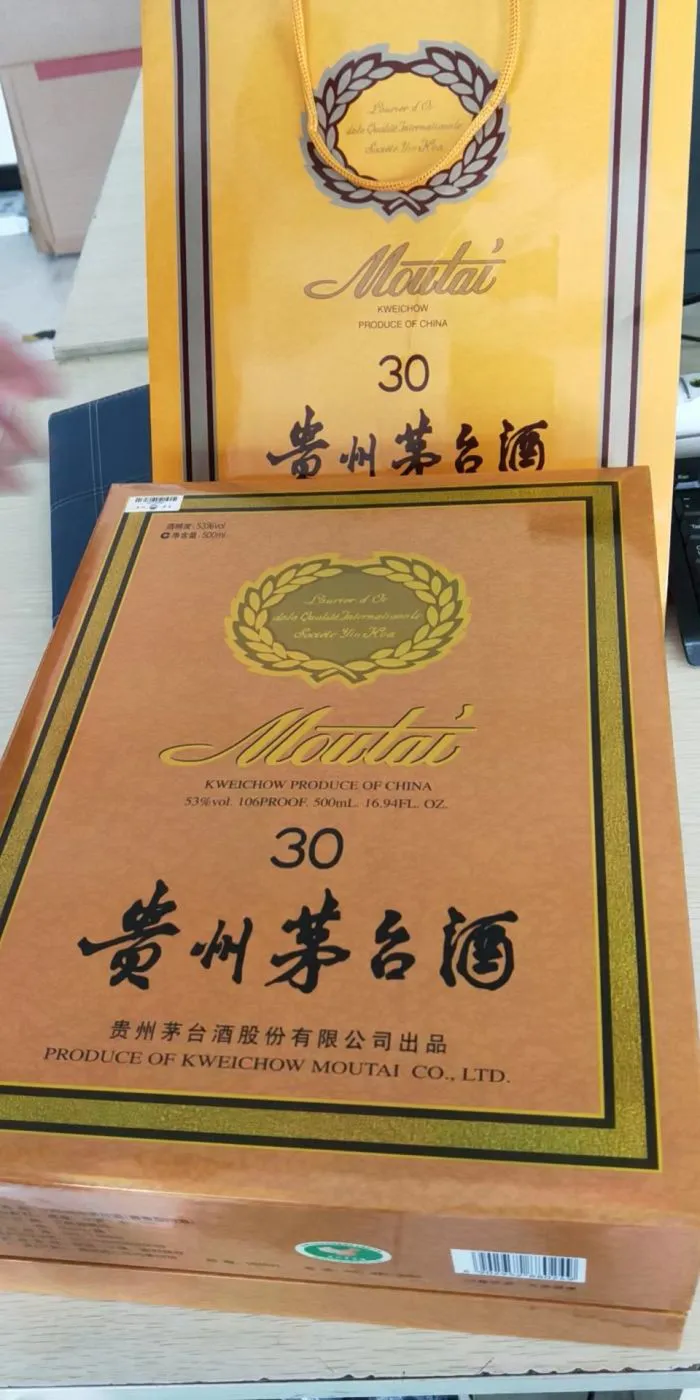 L'ourver d'Oc
dela Qualité Internationale
Société Yin Hoa
Moutai
KWEICHOW
PRODUCE OF CHINA
30
贵州茅台酒
酒精度:53%vol
净含量:500ml
L'ourver d'Oc
dela Qualité Internationale
Société Yin Hoa
Moutai
KWEICHOW PRODUCE OF CHINA
53%vol. 106PROOF. 500mL. 16.94FL. OZ.
30
贵州茅台酒
贵州茅台酒股份有限公司出品
PRODUCE OF KWEICHOW MOUTAI CO., LTD.